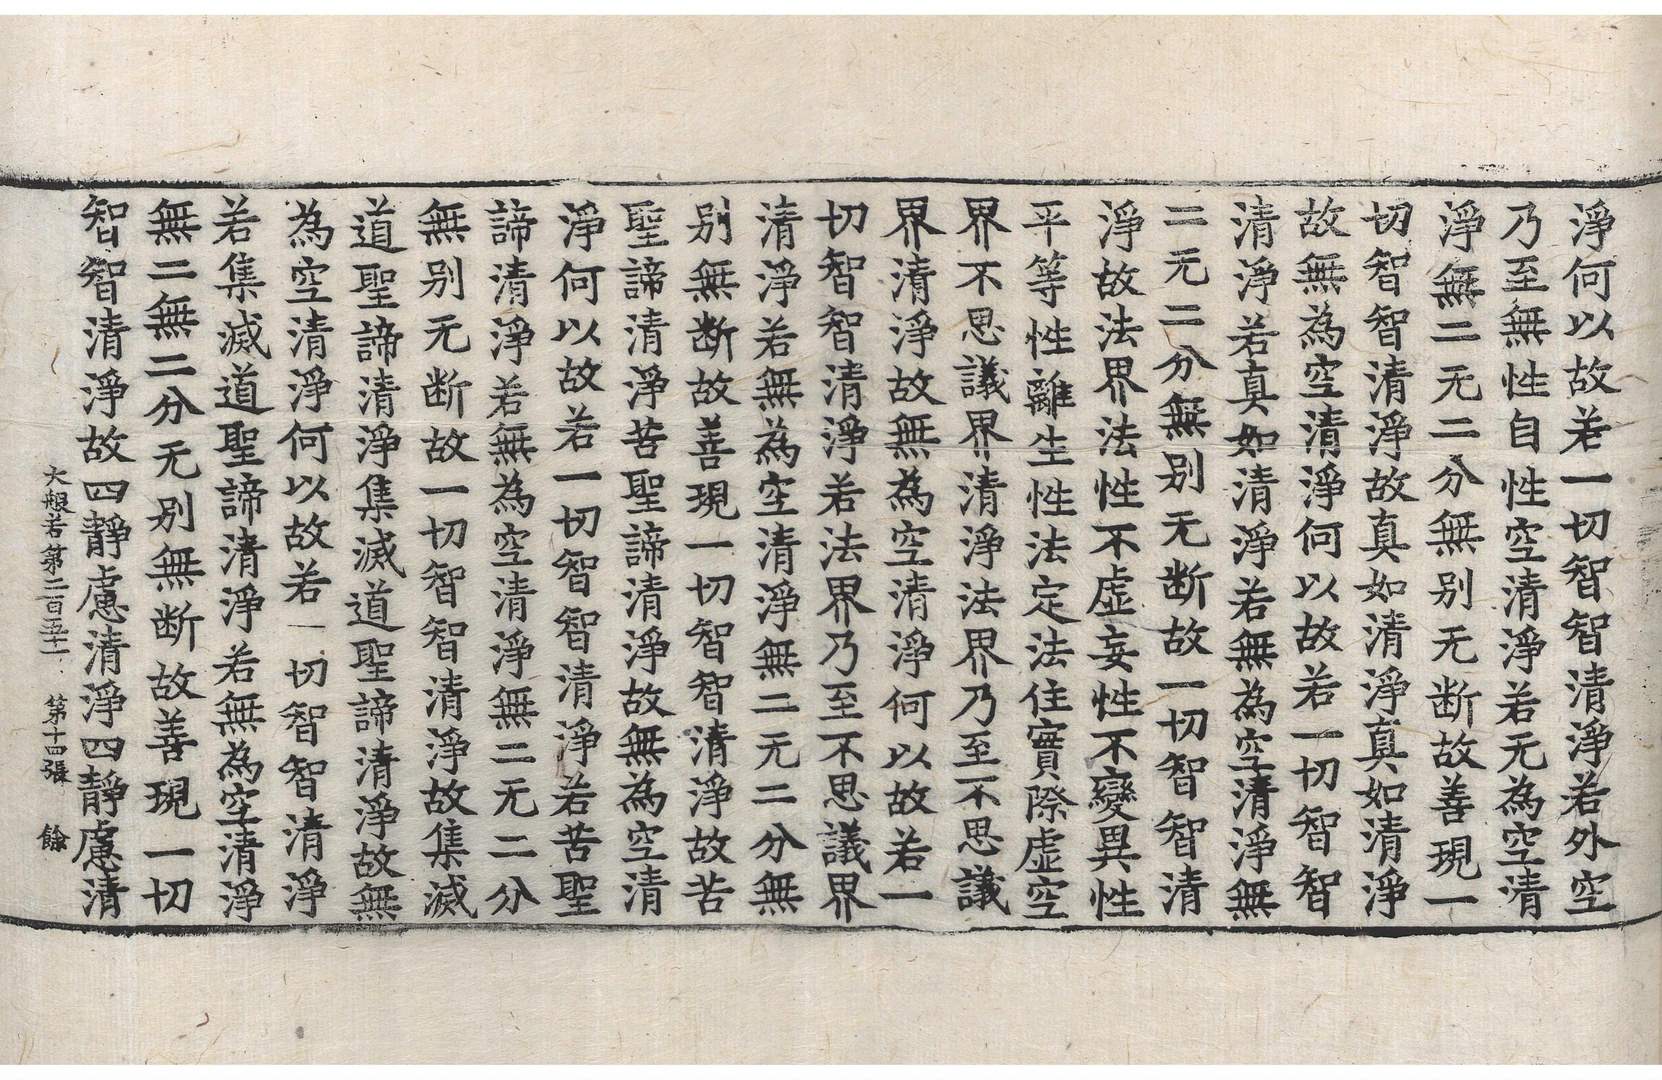 淨何以故若一切智智清淨若外空
乃至無性自性空清淨若无為空清
淨無二无二分無别无断故善現一
切智智清淨故真如清淨真如清淨
故無為空清淨何以故若一切智智
清淨若真如清淨若無為空清淨無
二无二分無别无断故一切智智清
淨故法界法性不虛妄性不變異性
平等性離生性法定法住實際虛空
界不思議界清淨法界乃至不思議
界清淨故無為空清淨何以故若一
切智智清淨若法界乃至不思議界
清淨若無為空清淨無二无二分無
别無断故善現一切智智清淨故苦
聖諦清淨苦聖諦清淨故無為空清
淨何以故若一切智智清淨若苦聖
諦清淨若無為空清淨無二无二分
無别无断故一切智智清淨故集滅
道聖諦清淨集滅道聖諦清淨故無
為空清淨何以故若一切智智清淨
若集滅道聖諦清淨若無為空清淨
無二無二分无别無断故善現一切
智智清淨故四靜慮清淨四靜慮清
大般若第二百五十一 第十四張 餘